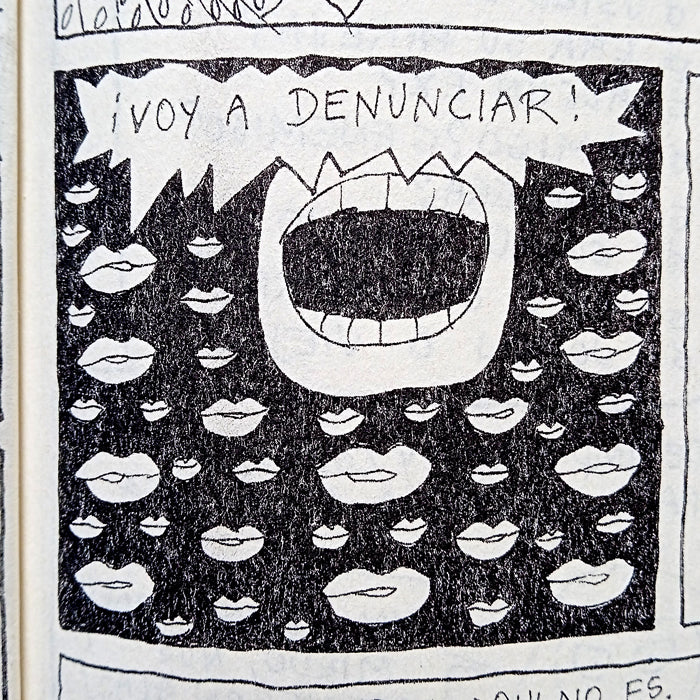 ¡VOY A DENUNCIAR!
NO ES.